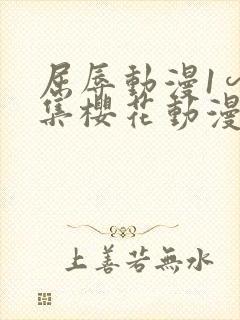 屈辱動漫1~
集櫻花動漫
上善若無水